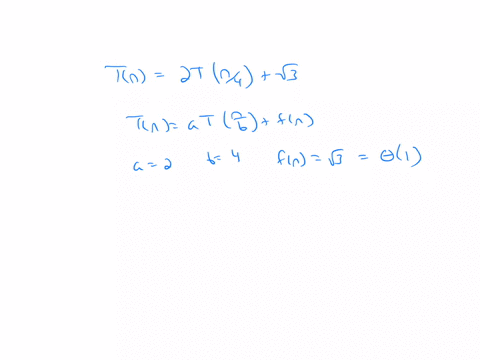 T(n) = 2T(n/4) + √3
T(n) = aT(n/b) + f(n)
a = 2 b = 4 f(n) = √3 = Θ(1)